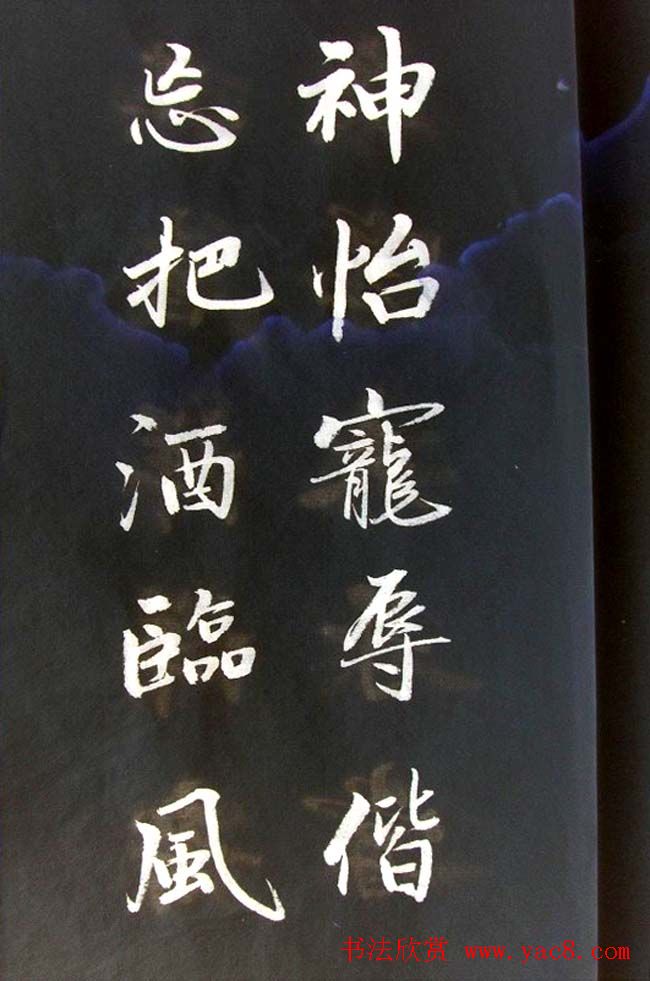 神怡寵辱偕
忘把酒臨風
书法欣赏 www.yac8.com